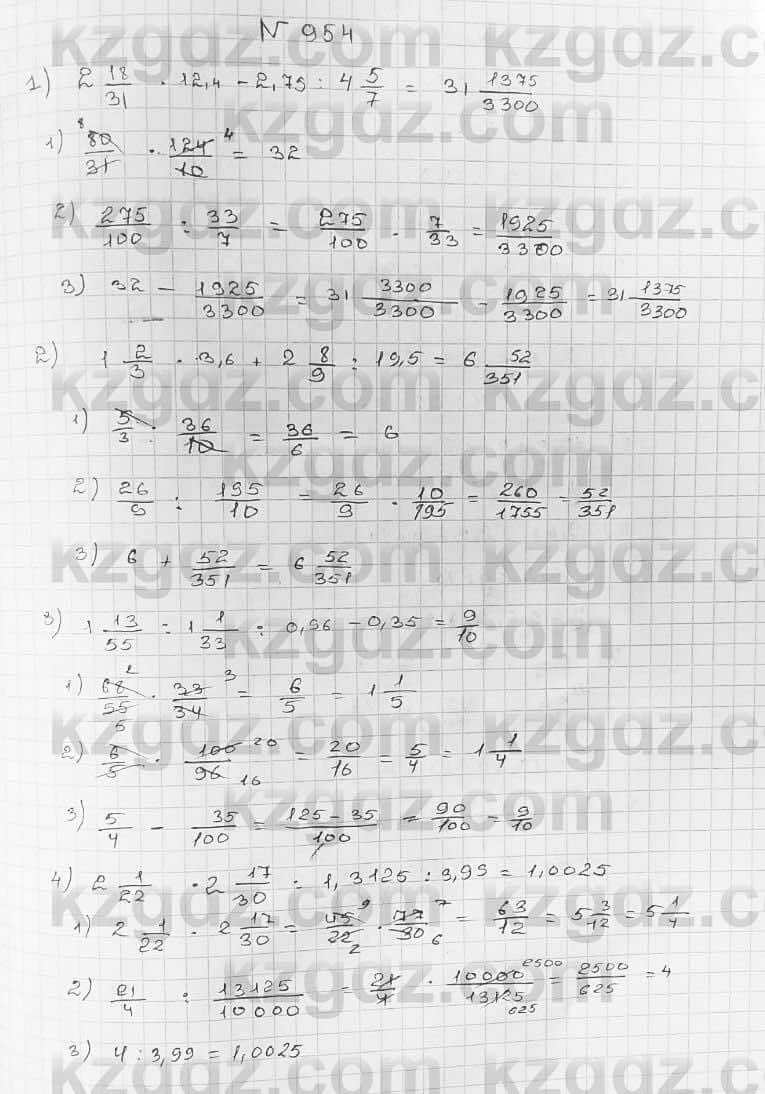 N 954
1) 2 18/31 · 12,4 - 2,75 : 4 5/7 = 31 1375/3300
1) 80/31 · 124/10 = 32
8 4
2) 275/100 : 33/7 = 275/100 · 7/33 = 1925/3300
3) 32 - 1925/3300 = 31 3300/3300 - 1925/3300 = 31 1375/3300
2) 1 2/3 · 3,6 + 2 8/9 : 19,5 = 6 52/351
1) 5/3 · 36/10 = 36/6 = 6
2) 26/9 : 195/10 = 26/9 · 10/195 = 260/1755 = 52/351
3) 6 + 52/351 = 6 52/351
3) 1 13/55 : 1 1/33 : 0,96 - 0,35 = 9/10
1) 68/55 · 33/34 = 6/5 = 1 1/5
2 3 5
2) 6/5 · 100/96 = 20/16 = 5/4 = 1 1/4
20 16
3) 5/4 - 35/100 = 125-35/100 = 90/100 = 9/10
4) 2 1/22 · 2 17/30 : 1,3125 : 3,99 = 1,0025
1) 2 1/22 · 2 17/30 = 45/22 · 77/30 = 63/12 = 5 3/12 = 5 1/4
9 7 2 6
2) 21/4 : 13125/10000 = 21/4 · 10000/13125 = 2500/625 = 4
2500 625
3) 4 : 3,99 = 1,0025
kzgdz.com